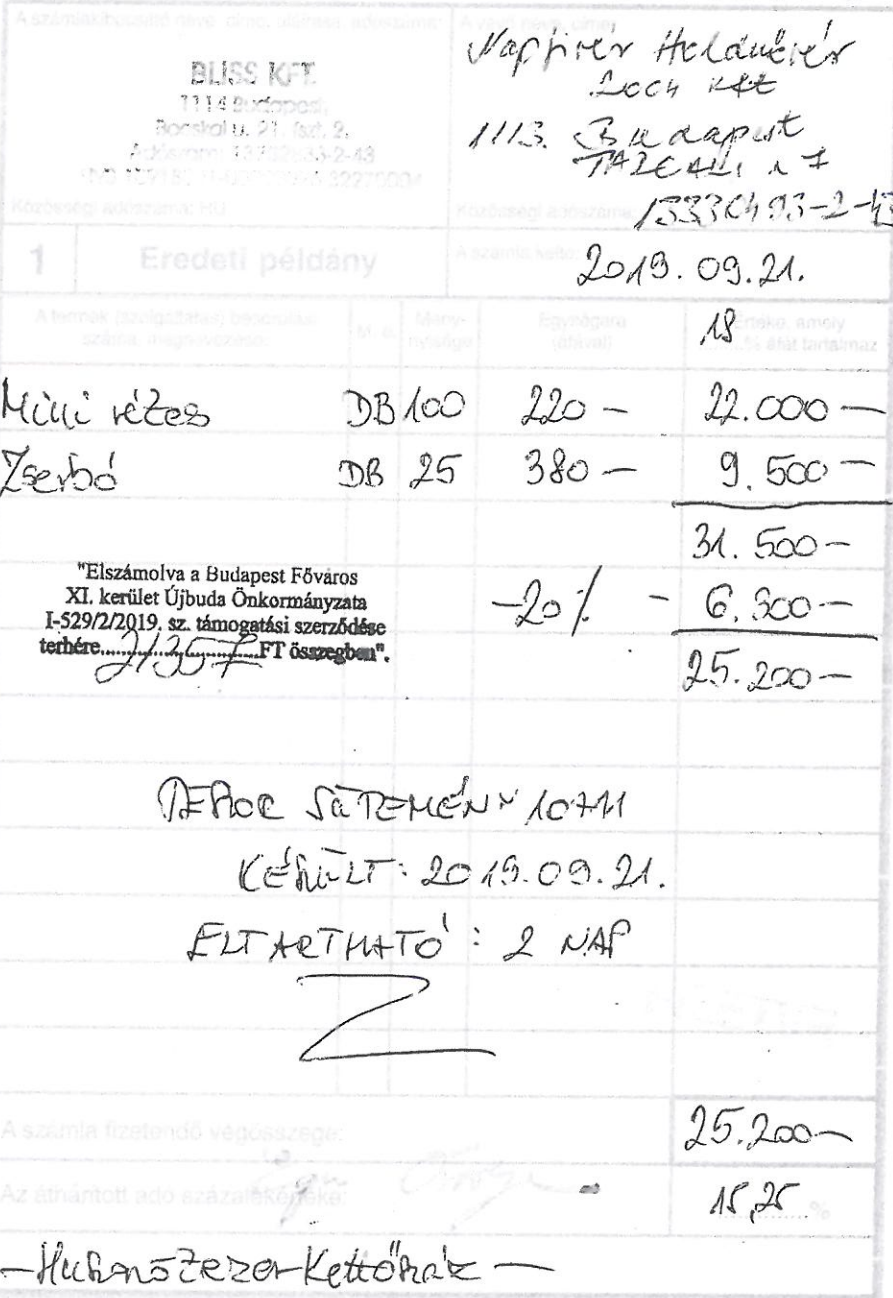 A számlakibocsátó neve, címe, adószáma:
A vevő neve, címe:
BLISS KFT.
1114 Budapest,
Bocskai u. 21. fszt. 2.
2004 Kft
1113. Budapest
Közösségi adószáma: HU
Közösségi adószáma:
1 Eredeti példány
A számla kelte:
2019.09.21.
A termék (szolgáltatás) besorolási száma, megnevezése:
M. e.
Mennyisége
Egységára (áfával)
18
Értéke, amely % áfát tartalmaz
Mini rétes DB 100 220 — 22.000 —
Zserbó DB 25 380 — 9.500 —
31.500 —
-20% - 6.300 —
25.200 —
"Elszámolva a Budapest Főváros
XI. kerület Újbuda Önkormányzata
I-529/2/2019. sz. támogatási szerződése
terhére.....21357.....FT összegben".
SÜTEMÉNY
KÉSZÜLT: 2019.09.21.
ELTARTHATÓ: 2 NAP
A számla fizetendő végösszege: 25.200 —
Az áthárított adó százalékértéke: 15,25 %
— Huszonötezer-Kettőszáz —